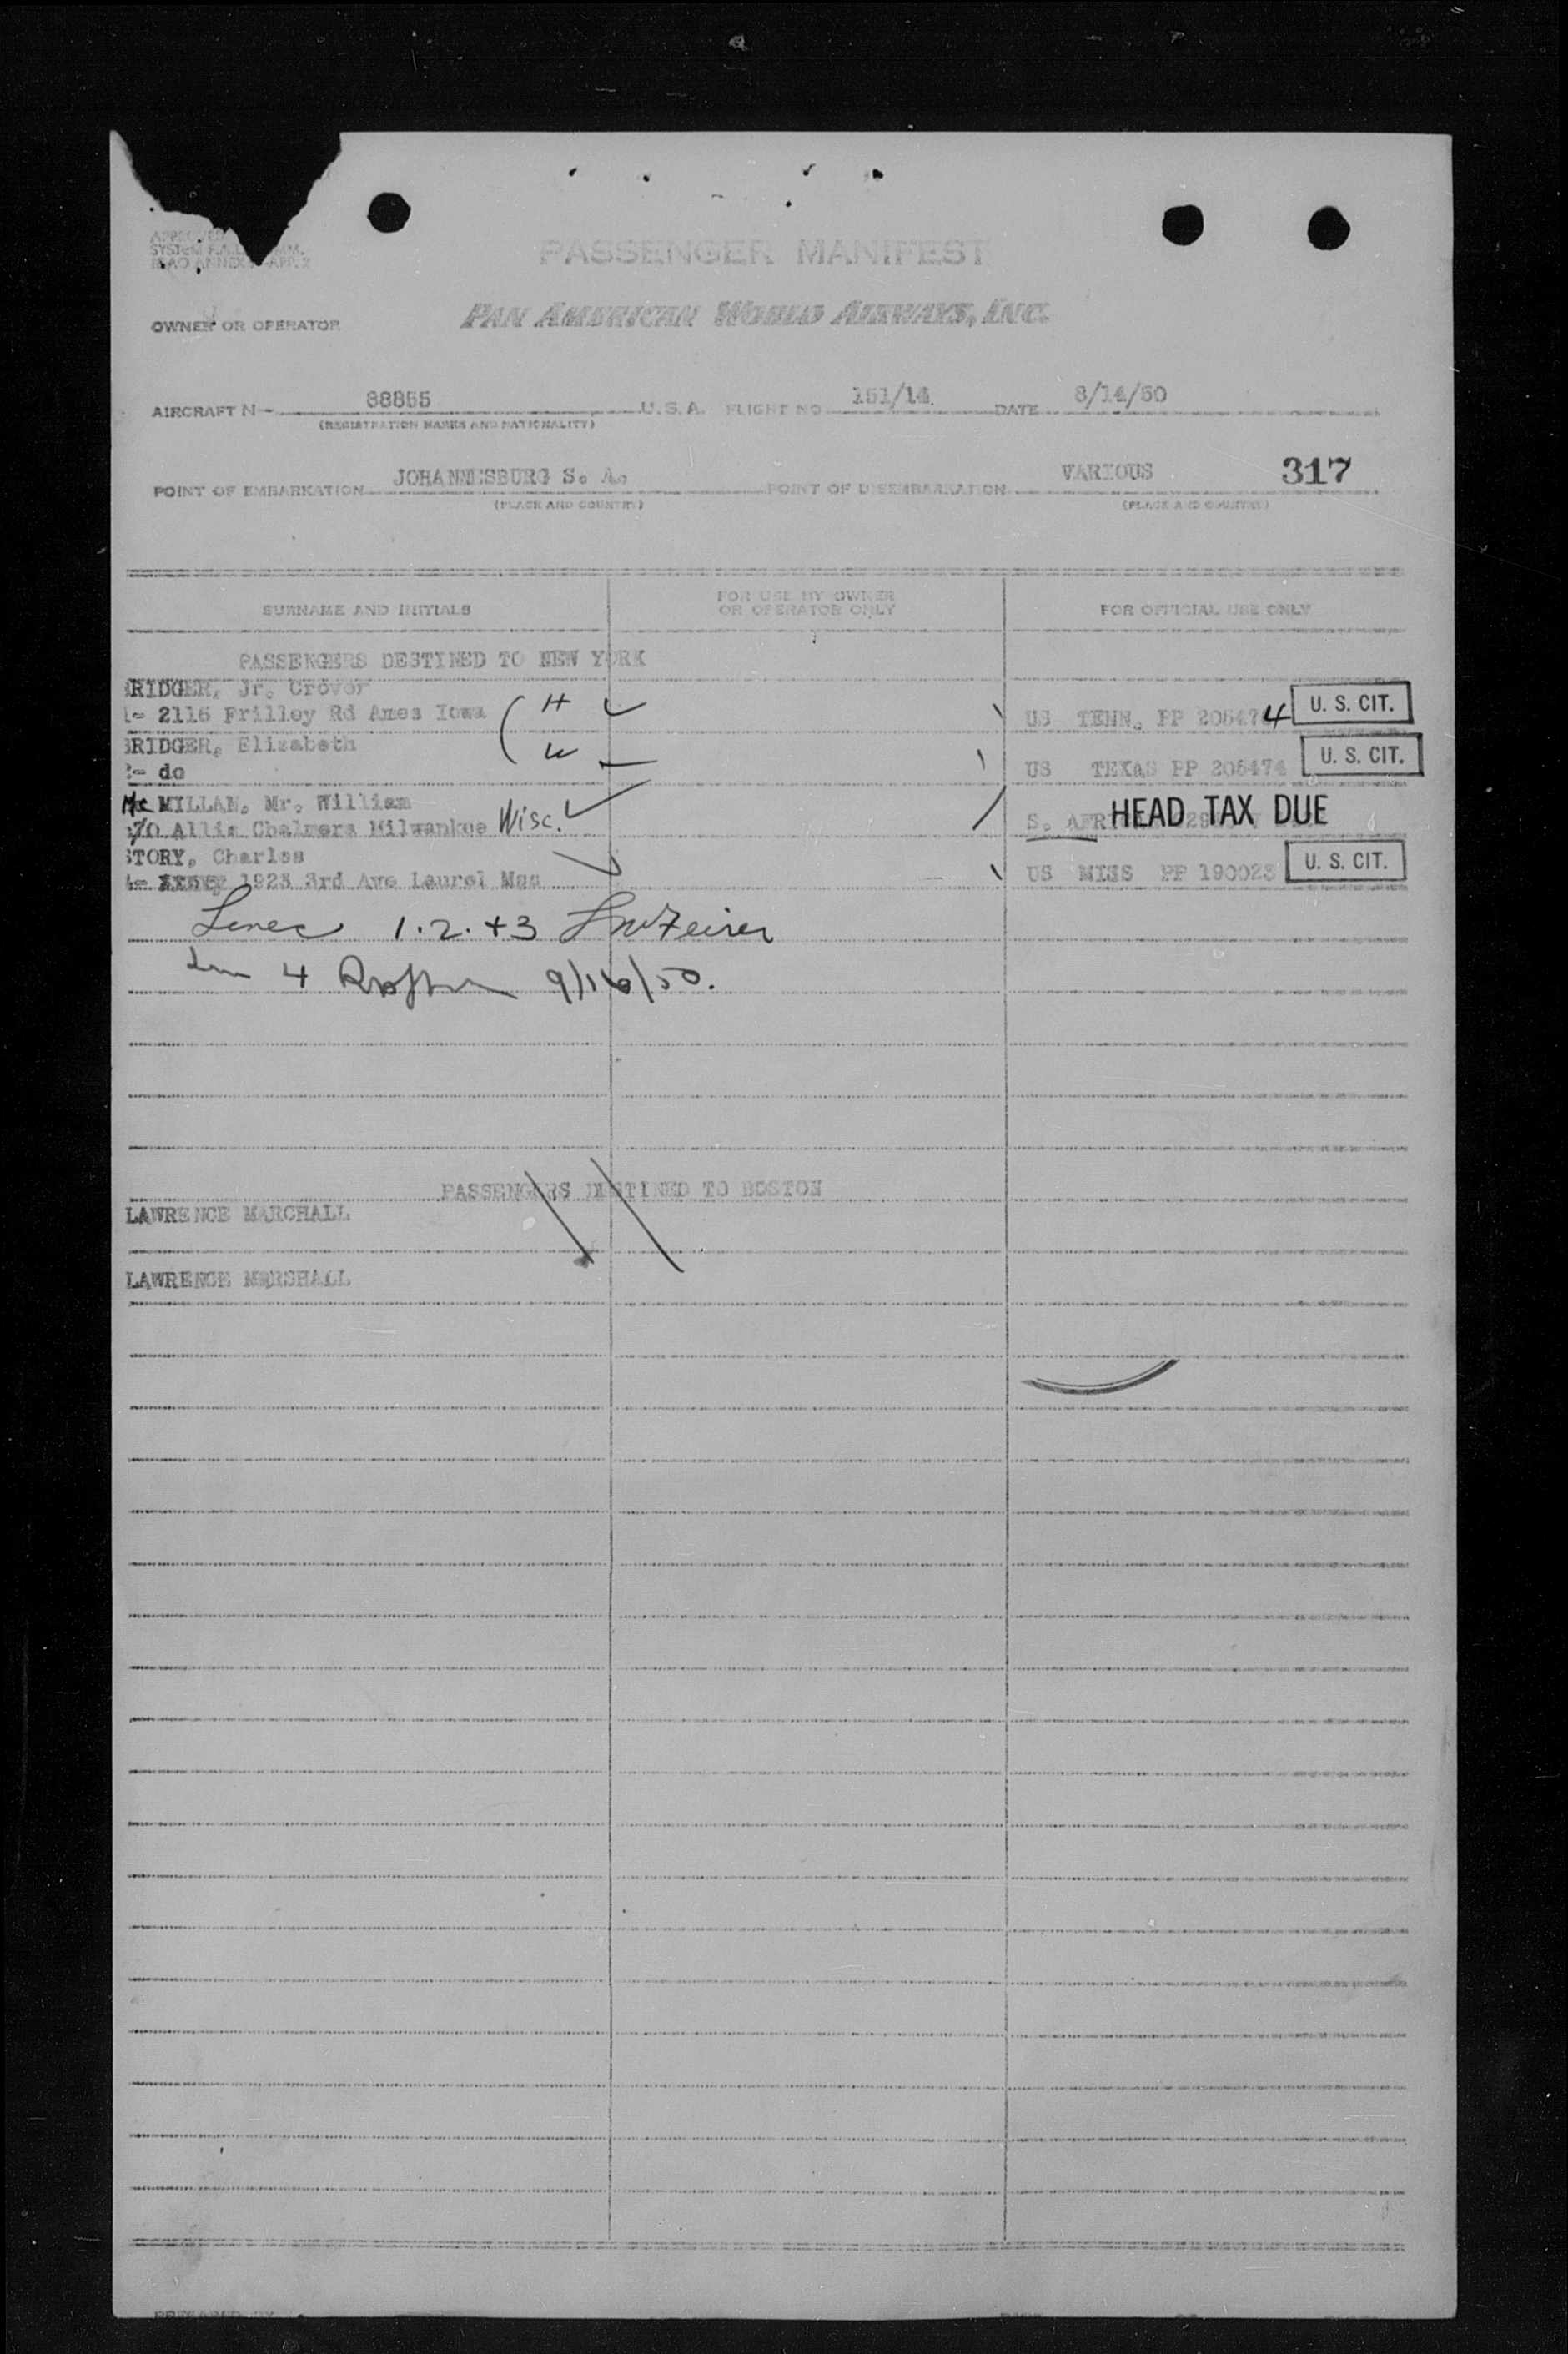 PASSENGER MANIFEST
OWNER OR OPERATOR PAN AMERICAN WORLD AIRWAYS, INC.
AIRCRAFT N- 88855 U.S.A. FLIGHT NO 151/14 DATE 8/14/50
(REGISTRATION MARKS AND NATIONALITY)
POINT OF EMBARKATION JOHANNESBURG S. A. POINT OF DISEMBARKATION VARIOUS 317
(PLACE AND COUNTRY) (PLACE AND COUNTRY)
SURNAME AND INITIALS FOR USE BY OWNER OR OPERATOR ONLY FOR OFFICIAL USE ONLY
PASSENGERS DESTINED TO NEW YORK
BRIDGER, Jr. Grover
2116 Frilley Rd Ames Iowa H US TENN. PP 205474 U. S. CIT.
BRIDGER, Elizabeth W
- do US TEXAS PP 205474 U. S. CIT.
Mc MILLAN, Mr. William
Allis Chalmers Milwaukee Wisc. S. AFR HEAD TAX DUE
STORY, Charles
1923 3rd Ave Laurel Mss US MISS PP 190023 U. S. CIT.
1.2.+3
4 9/16/50.
PASSENGERS DESTINED TO BOSTON
LAWRENCE MARCHALL
LAWRENCE MARSHALL